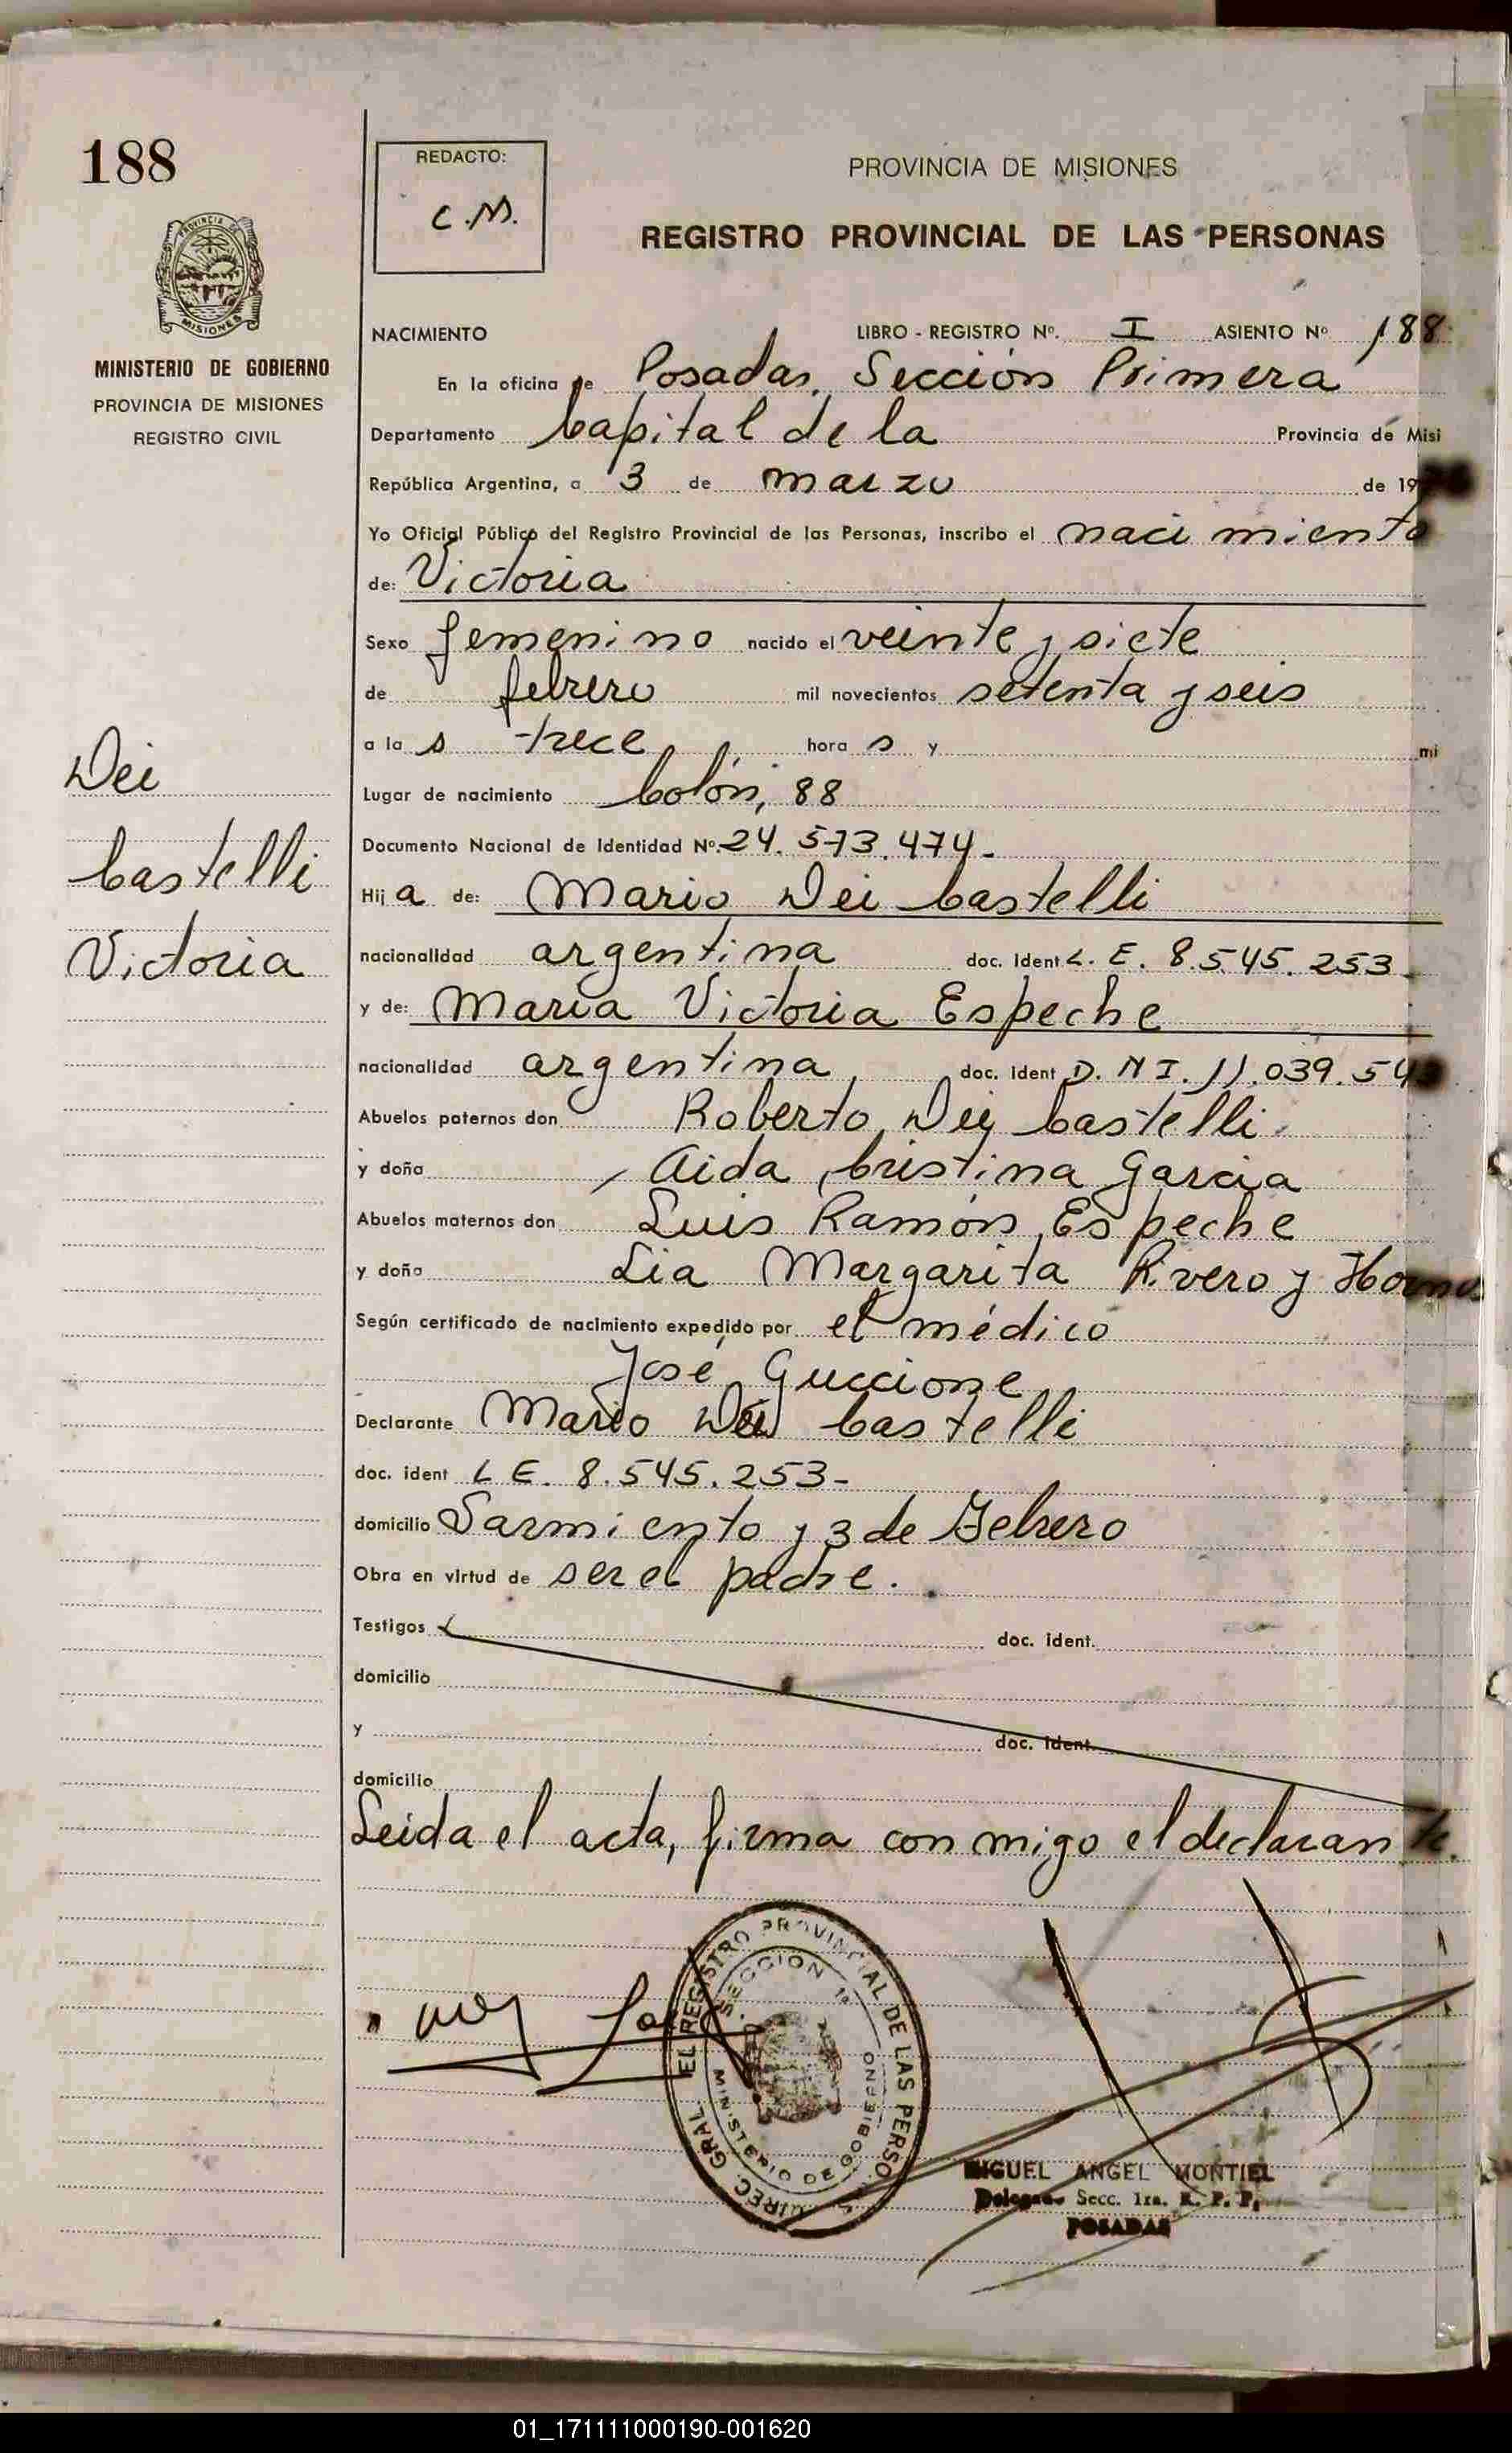 188
REDACTO:
C.M.
PROVINCIA DE MISIONES
REGISTRO PROVINCIAL DE LAS PERSONAS
PROVINCIA DE
MISIONES
MINISTERIO DE GOBIERNO
PROVINCIA DE MISIONES
REGISTRO CIVIL
NACIMIENTO LIBRO - REGISTRO Nº. I ASIENTO Nº 188
En la oficina de Posadas, Sección Primera
Departamento Capital de la Provincia de Misi
República Argentina, a 3 de marzo de 19
Yo Oficial Público del Registro Provincial de las Personas, inscribo el nacimiento
de: Victoria
Sexo femenino nacido el veinte y siete
de febrero mil novecientos setenta y seis
a la s trece hora s y mi
Lugar de nacimiento Colón, 88
Documento Nacional de Identidad Nº. 24.573.474-
Dei
Castelli
Victoria
Hij a de: Mario Dei Castelli
nacionalidad argentina doc. ident L. E. 8.545.253
y de: Maria Victoria Espeche
nacionalidad argentina, doc. ident D. N I. 11.039.54
Abuelos paternos don Roberto Dei Castelli
y doña Aida Cristina Garcia
Abuelos maternos don Luis Ramón Espeche
y doña Lia Margarita Rivero y
Según certificado de nacimiento expedido por el médico
José Guccione
Declarante Mario Dei Castelli
doc. ident L E. 8.545.253-
domicilio Sarmiento y 3 de Febrero
Obra en virtud de ser el padre.
Testigos doc. ident.
domicilio
y doc. ident.
domicilio
Leida el acta, firma conmigo el declarante.
DIREC. GRAL. EL REGISTRO PROVINCIAL DE LAS PERSO
SECCION 1ª
MINISTERIO DE GOBIERNO
MIGUEL ANGEL MONTIEL
Delegado Secc. 1ra. R. P. P.
POSADAS
01_171111000190-001620